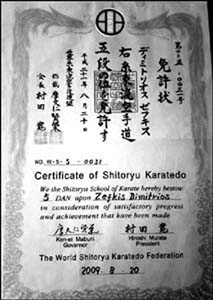 第五五-〇〇二一号
免許状
ディミトリオス ゼフキス
右糸東流空手道
五段の位を免許す
平成二十一年八月二十日
会長 村田寛
NO. W-S-5-0021
Certificate of Shitoryu Karatedo
We the Shitoryu School of Karate hereby bestow
5 DAN upon Zefkis Dimitrios
in consideration of satisfactory progress
and achievement that have been made.
Ken-ei Mabuni
Governor
Hiroshi Murata
President
The World Shitoryu Karatedo Federation
2009. 8. 20